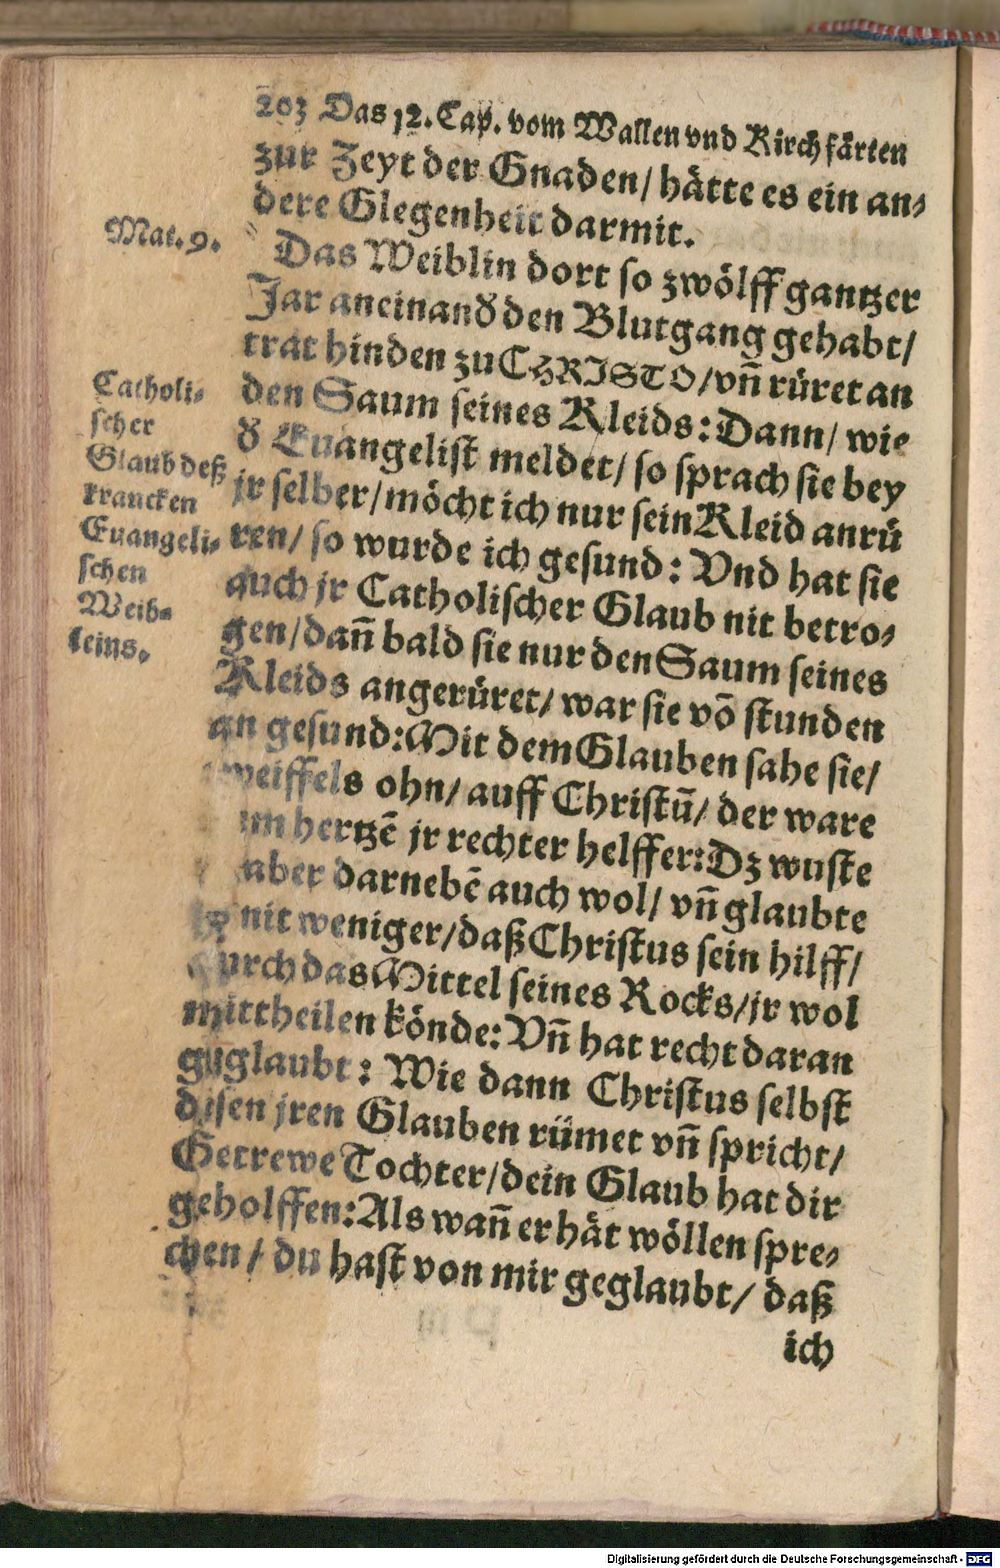 203 Das 12. Cap. vom Wallen vnd Kirchfärten
zur Zeyt der Gnaden/ hätte es ein an⸗
dere Glegenheit darmit.
Mat. 9.
Das Weiblin dort so zwölff gantzer
Jar aneinand̕ den Blutgang gehabt/
trat hinden zu CHRISTO/ vñ rüret an
den Saum seines Kleids: Dann/ wie
d̕ Euangelist meldet/ so sprach sie bey
jr selber/ möcht ich nur sein Kleid anrü
ren/ so wurde ich gesund: Vnd hat sie
auch jr Catholischer Glaub nit betro⸗
gen/ dañ bald sie nur den Saum seines
Kleids angerüret/ war sie võ stunden
an gesund: Mit dem Glauben sahe sie/
zweiffels ohn/ auff Christũ/ der ware
im hertzẽ jr rechter helffer: Dz wuste
aber darnebẽ auch wol/ vñ glaubte
nit weniger/ daß Christus sein hilff/
durch das Mittel seines Rocks/ jr wol
mittheilen könde: Vñ hat recht daran
gnglaubt: Wie dann Christus selbst
disen jren Glauben rümet vñ spricht/
Getrewe Tochter/ dein Glaub hat dir
geholffen: Als wañ er hät wöllen spre⸗
chen/ du hast von mir geglaubt/ daß
ich
Catholi⸗
scher
Glaub deß
krancken
Euangeli⸗
schen
Weib⸗
leins.
Digitalisierung gefördert durch die Deutsche Forschungsgemeinschaft - DFG